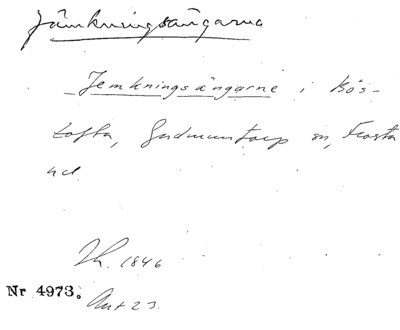 Jämkningsängarna
Jemkningsängarne i Rös-
tofta, Gudmuntorp sn, Frosta
hd
Th. 1846
Nr 4973. Ant 23